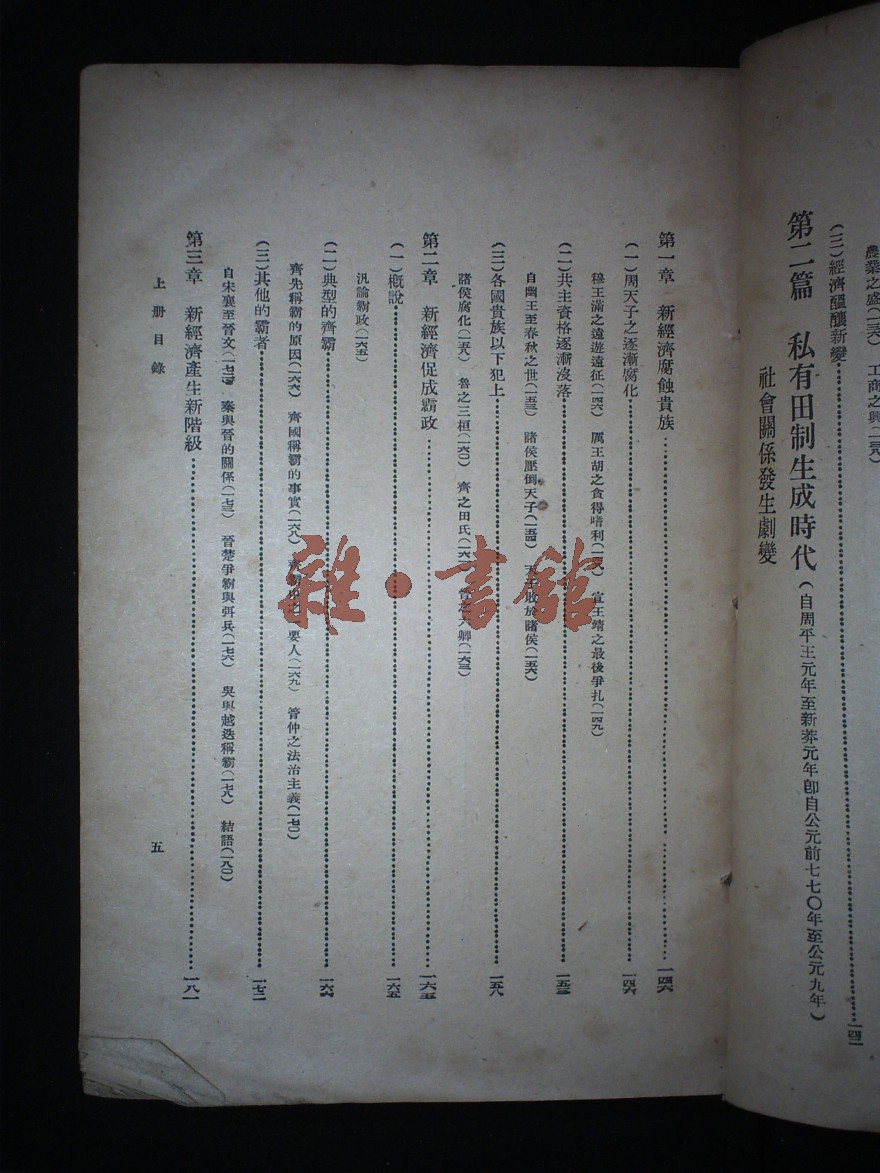 農業之盛(一三六) 工商之興(一三八)
(三)經濟醞釀新變……一四二
第二篇 私有田制生成時代(自周平王元年至新莽元年卽自公元前七七〇年至公元九年)
社會關係發生劇變
第一章 新經濟腐蝕貴族……一四六
(一)周天子之逐漸腐化……一四六
穆王滿之遠遊遠征(一四六) 厲王胡之貪得嗜利(一四八) 宣王靖之最後爭扎(一四九)
(二)共主資格逐漸沒落……一五三
自幽王至春秋之世(一五三) 諸侯壓倒天子(一五四) 天子敗於諸侯(一五六)
(三)各國貴族以下犯上……一五八
諸侯腐化(一五九) 魯之三桓(一六〇) 齊之田氏(一六 晉之六卿(一六三)
第二章 新經濟促成霸政……一六五
(一)概說……一六五
汎論霸政(一六五)
(二)典型的齊霸……一六六
齊先稱霸的原因(一六六) 齊國稱霸的事實(一六八) 要人(一六九) 管仲之法治主義(一七〇)
(三)其他的霸者……一七二
自宋襄至晉文(一七二) 秦與晉的關係(一七三) 晉楚爭霸與弭兵(一七六) 吳與越迭稱霸(一七八) 結語(一八〇)
第三章 新經濟產生新階級……一八一
上册目錄
五
雜·書館